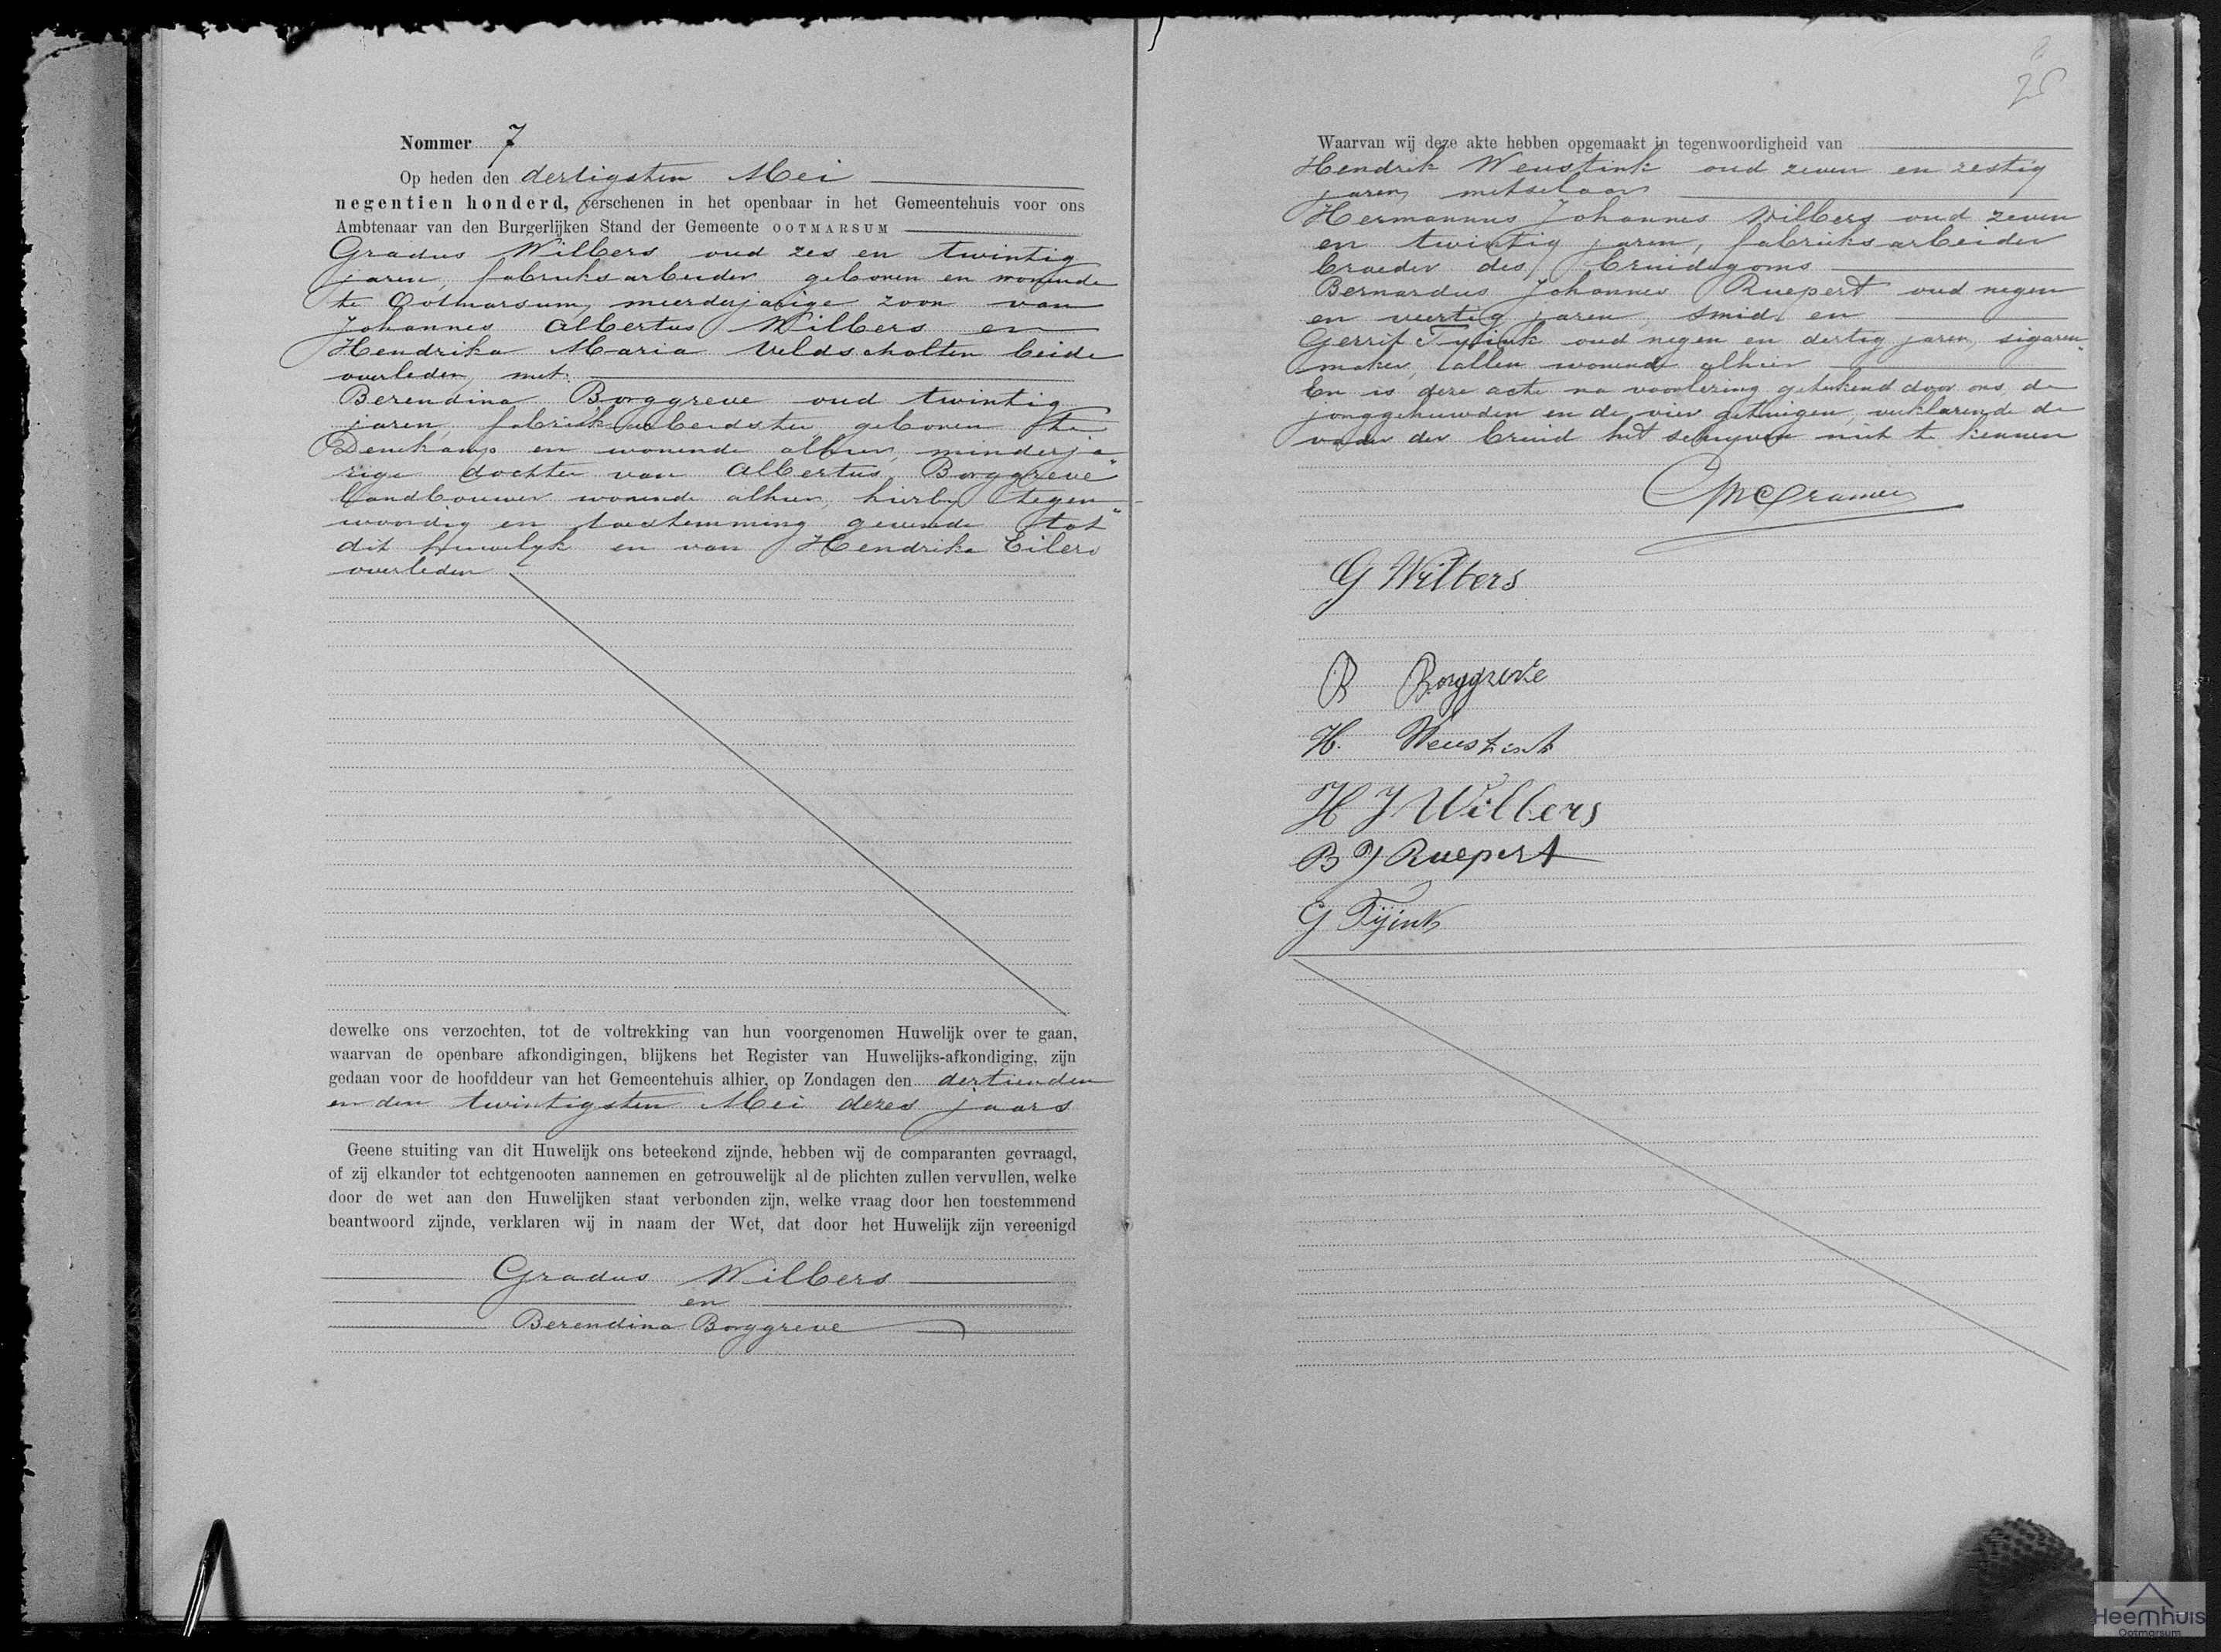 Nommer 7
Op heden den dertigsten Mei
negentien honderd, verschenen in het openbaar in het Gemeentehuis voor ons
Ambtenaar van den Burgerlijken Stand der Gemeente OOTMARSUM
Gradus Wilbers oud zes en twintig
jaren, fabrieksarbeider geboren en wonende
te Ootmarsum, meerderjarige zoon van
Johannes Albertus Wilbers en
Hendrika Maria Veldscholten beide
overleden, met
Berendina Borggreve oud twintig
jaren, fabriekarbeidster, geboren te
Denekamp en wonende alhier, minderja"
rige dochter van Albertus Borggreve
landbouwer wonende alhier, hierby tegen"
woordig en toestemming gevende tot
dit huwelyk en van Hendrika Eilers
overleden
dewelke ons verzochten, tot de voltrekking van hun voorgenomen Huwelijk over te gaan,
waarvan de openbare afkondigingen, blijkens het Register van Huwelijks-afkondiging, zijn
gedaan voor de hoofddeur van het Gemeentehuis alhier, op Zondagen den dertienden
en den twintigsten Mei dezes jaars
Geene stuiting van dit Huwelijk ons beteekend zijnde, hebben wij de comparanten gevraagd,
of zij elkander tot echtgenooten aannemen en getrouwelijk al de plichten zullen vervullen, welke
door de wet aan den Huwelijken staat verbonden zijn, welke vraag door hen toestemmend
beantwoord zijnde, verklaren wij in naam der Wet, dat door het Huwelijk zijn vereenigd
Gradus Wilbers
en
Berendina Borggreve
25
Waarvan wij deze akte hebben opgemaakt in tegenwoordigheid van
Hendrik Weustink oud zeven en zestig
jaren, metselaar
Hermannus Johannes Wilbers oud zeven
en twintig jaren, fabrieksarbeider
broeder des bruidegoms
Bernardus Johannes Ruepert oud negen
en veertig jaren, smid en
Gerrit Tyink oud negen en dertig jaren, sigaren"
maker, allen wonende alhier
En is deze acte na voorlezing geteekend door ons, de
jonggehuwden en de vier getuigen, verklarende de
vader der bruid het schryven niet te kennen
Cramer
G Wilbers
B Borggreve
H. Weustink
H J Wilbers
B J Ruepert
G Tijink
Heemhuis
Ootmarsum